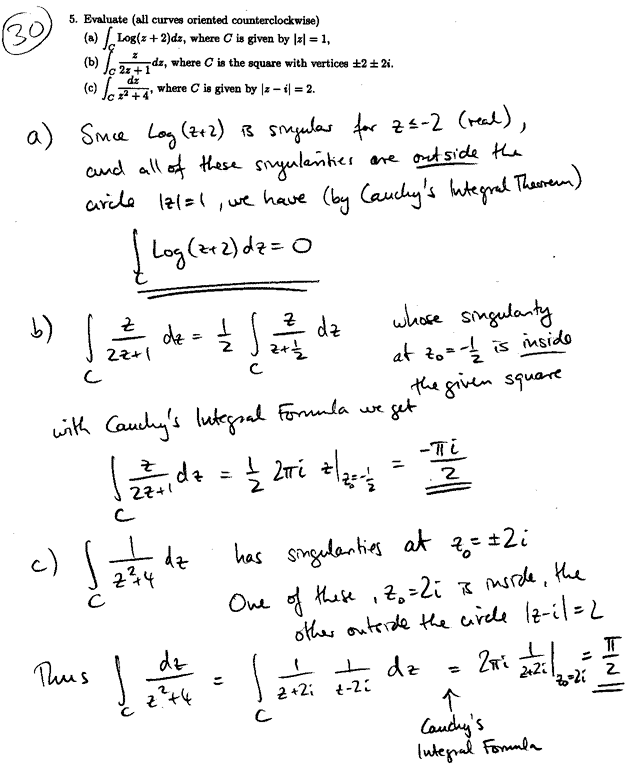 30
5. Evaluate (all curves oriented counterclockwise)
(a) ∫_C Log(z + 2)dz, where C is given by |z| = 1,
(b) ∫_C z/(2z + 1) dz, where C is the square with vertices ±2 ± 2i.
(c) ∫_C dz/(z² + 4), where C is given by |z − i| = 2.
a) Since Log(z+2) is singular for z ≤ -2 (real),
and all of these singularities are outside the
circle |z|=1, we have (by Cauchy's Integral Theorem)
∫_C Log(z+2) dz = 0
b) ∫_C z/(2z+1) dz = 1/2 ∫_C z/(z+1/2) dz whose singularity
at z₀=-1/2 is inside
the given square
with Cauchy's Integral Formula we get
∫_C z/(2z+1) dz = 1/2 2πi z|_{z₀=-1/2} = -πi/2
c) ∫_C 1/(z²+4) dz has singularities at z₀=±2i
One of these, z₀=2i is inside, the
other outside the circle |z-i|=2
Thus ∫_C dz/(z²+4) = ∫_C 1/(z+2i) 1/(z-2i) dz = 2πi 1/(z+2i)|_{z₀=2i} = π/2
↑
Cauchy's
Integral Formula